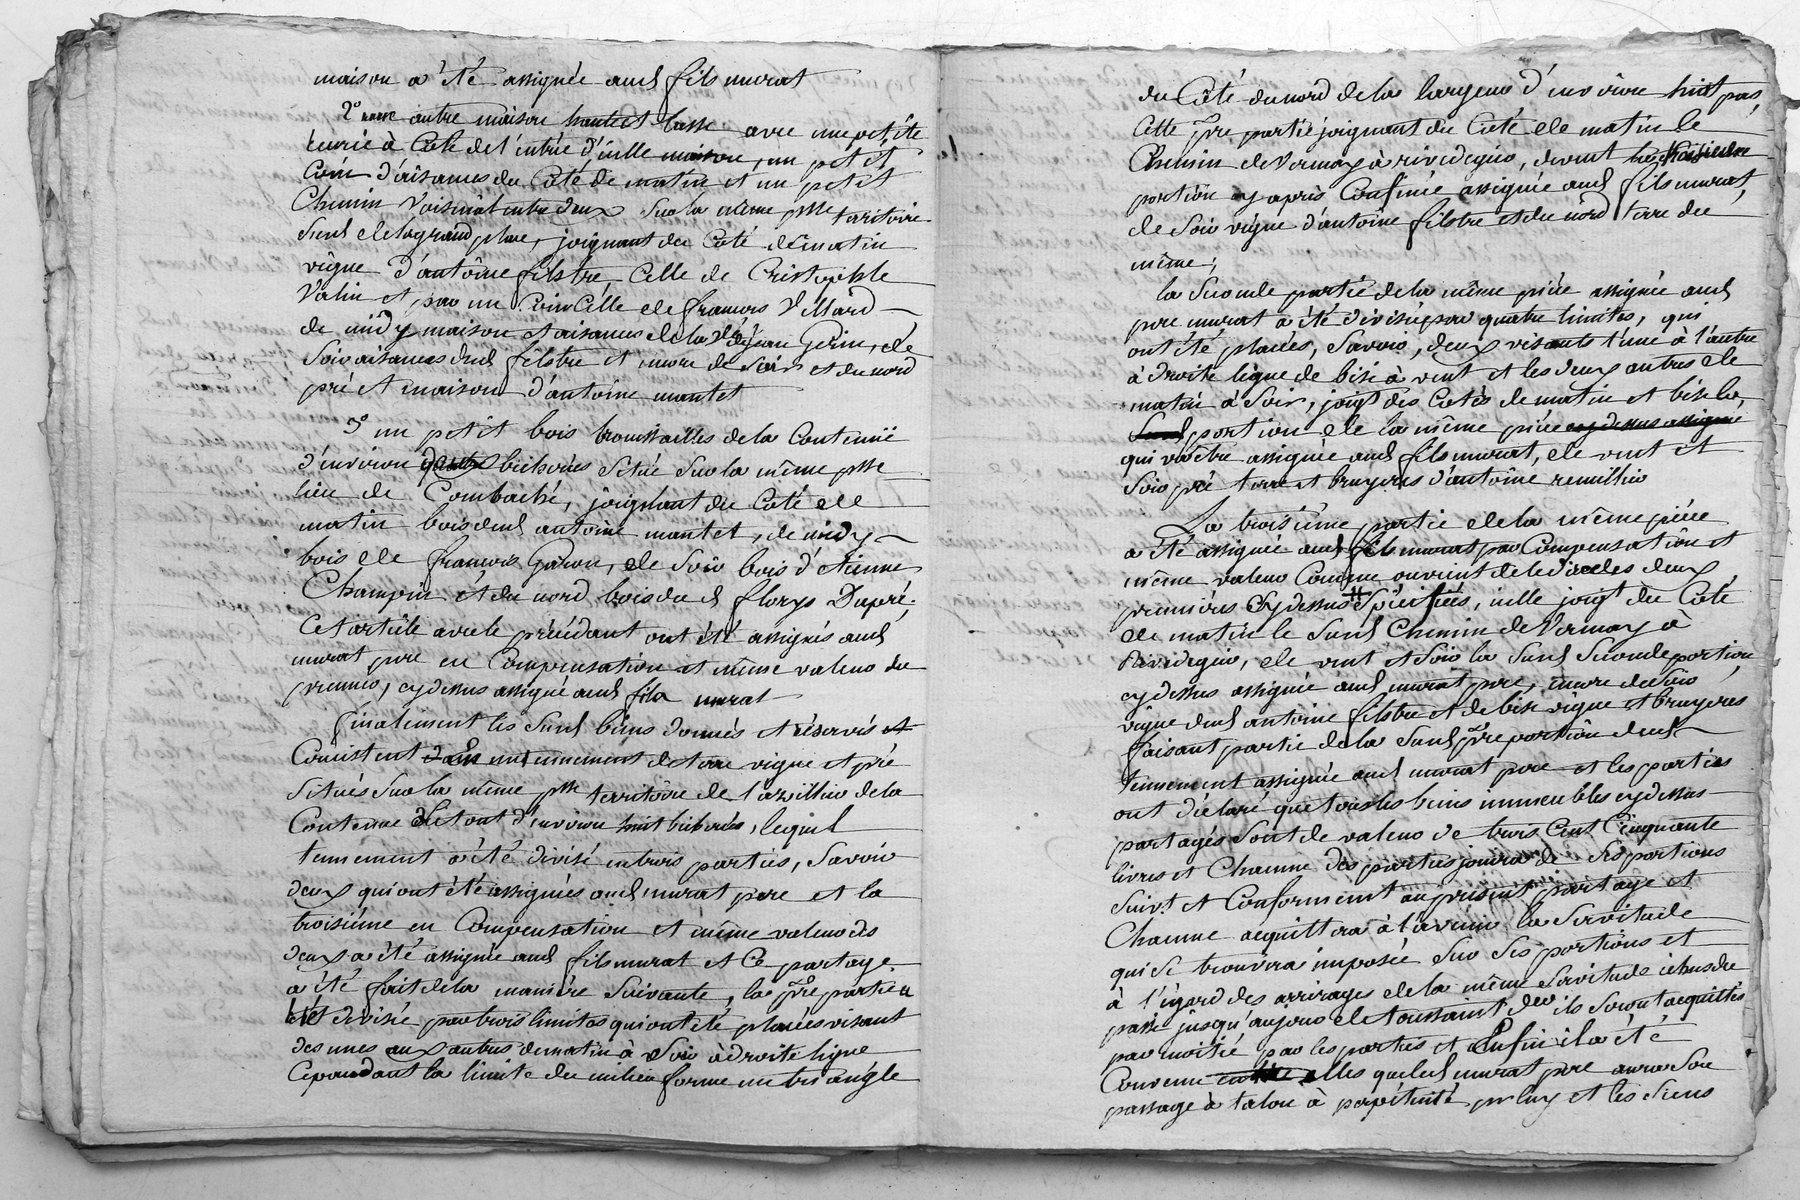 maison a été assignée aud fils murat
2° une autre maison haute et basse avec une petite
écurie à Coté de l'entrée d'icelle maison, un petit
Coin d'aisances du Coté de matin et un petit
Chemin Voisinat entre deux Sur la même psse territoire
Susd de la grand place, joignant du Coté de matin
vigne d'antoine filstre, Celle de Cristophle
Valin et par un Coin Celle de francois Villard
de midy maison et aisances de la Ve jean Gerin, de
Soir aisances dud filstre et encore de Soir et du nord
pré et maison d'antoine mantet
3° un petit bois broussailles de la Contenue
d'environ quatre bicherées Situé Sur la même psse
lieu de Combaché, joignant du Coté de
matin bois dud antoine mantet, de midy
bois de francois Garon, de Soir bois d'etienne
Champin et du nord bois du d florys Dupré.
Cet article avec le précédant ont été assignés aud
murat pere en Compensation et même valeur du
premier, cy dessus assigné aud fils murat
finalement les Susd biens donnés et réservés et
Consistent dans un tennement de terre vigne et pré
Situés Sur la même psse territoire de l'arzillier de la
Contenue de tout d'environ huit bicherées, lequel
tennement a été divisé en trois parties, Savoir
deux qui ont été assignées aud murat pere et la
troisieme en Compensation et même valeur des
deux a été assignée aud fils murat et Ce partage
a été fait de la maniére Suivante, la pre partie a
été divisée par trois limites qui ont été placées visant
des unes aux autres de matin à Soir à droite ligne
Cependant la limite du milieu forme un triangle
du Côté du nord de la largeur d'environ huit pas,
Cette pre partie joignant du Coté de matin le
Chemin de Vernay à rivedegier, de vent la troisieme
portion cy après Confinée assignée aud fils murat,
de Soir vigne d'antoine filstre et du nord terre du
même;
la Seconde partie de la même piéce assignée aud
pere murat a été divisée par quatre limites, qui
ont été placées, Savoir, deux visants l'une à l'autre
à droite ligne de bise à vent et les deux autres de
matin à Soir, joigt des Cotés de matin et bise la
Susd portion de la même piéce cy dessus assignée
qui va être assignée aud fils murat, de vent et
Soir pré terre et bruyeres d'antoine remillier
La troisième partie de la même piéce
a été assignée aud fils murat par Compensation et
même valeur Comme ouvrent de le d icelles deux
premiéres Cy dessus Spécifiées, icelle joigt du Coté
de matin le Susd Chemin de Vernay à
Rivedegier, de vent et Soir la Susd Seconde portion
cy dessus assignée aud murat pere, encore de Soir
vigne dud antoine filstre et de bise vigne et bruyeres
faisant partie de la Susd pre portion dud
tennement assignée aud murat pere et les parties
ont déclaré que tous les biens immeubles cy dessus
partagés Sont de valeur de trois Cent Cinquante
livres et Chacune des parties jouira de Ses portions
Suivt et Conformement au présent partage et
Chacune acquittera à l'avenir la Servitude
qui Se trouvera imposée Sur Ses portions et
à l'égard des arrérages de la même Servitude échus du
passé jusqu'aujour de toussaint der ils Seront acquittés
par moitié par les parties et Enfin il a été
Convenu entre elles que led murat pere aura Son
passage à talon à perpétuité pr luy et les Siens